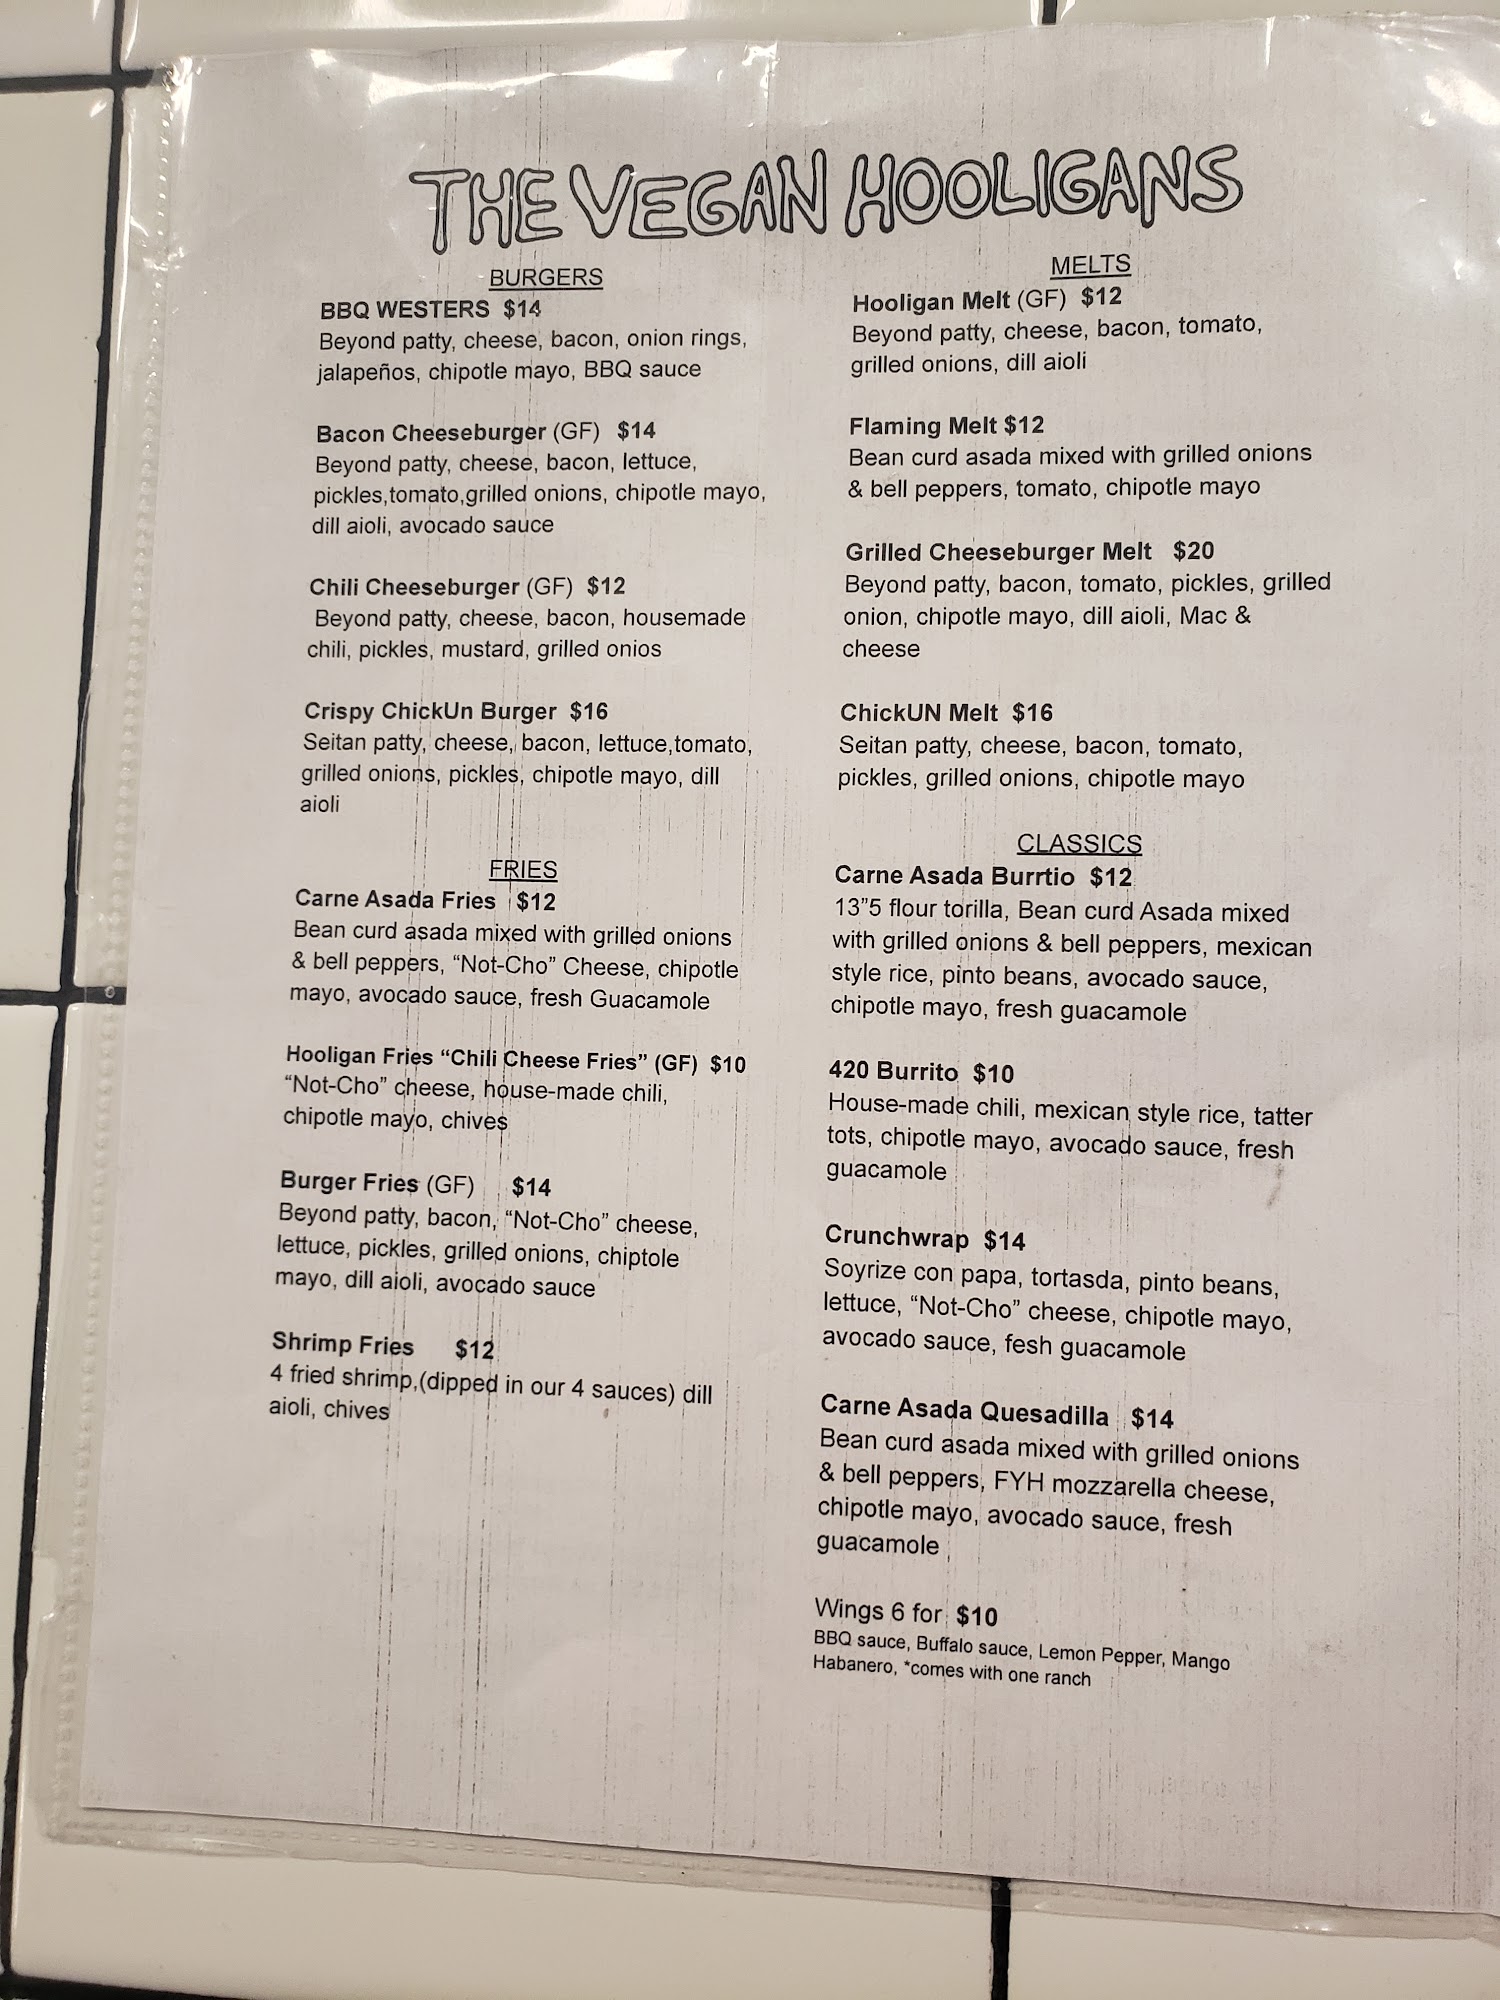 THE VEGAN HOOLIGANS
BURGERS
BBQ WESTERS $14
Beyond patty, cheese, bacon, onion rings,
jalapeños, chipotle mayo, BBQ sauce
Bacon Cheeseburger (GF) $14
Beyond patty, cheese, bacon, lettuce,
pickles,tomato,grilled onions, chipotle mayo,
dill aioli, avocado sauce
Chili Cheeseburger (GF) $12
Beyond patty, cheese, bacon, housemade
chili, pickles, mustard, grilled onios
Crispy ChickUn Burger $16
Seitan patty, cheese, bacon, lettuce,tomato,
grilled onions, pickles, chipotle mayo, dill
aioli
FRIES
Carne Asada Fries $12
Bean curd asada mixed with grilled onions
& bell peppers, “Not-Cho” Cheese, chipotle
mayo, avocado sauce, fresh Guacamole
Hooligan Fries “Chili Cheese Fries” (GF) $10
“Not-Cho” cheese, house-made chili,
chipotle mayo, chives
Burger Fries (GF) $14
Beyond patty, bacon, “Not-Cho” cheese,
lettuce, pickles, grilled onions, chiptole
mayo, dill aioli, avocado sauce
Shrimp Fries $12
4 fried shrimp,(dipped in our 4 sauces) dill
aioli, chives
MELTS
Hooligan Melt (GF) $12
Beyond patty, cheese, bacon, tomato,
grilled onions, dill aioli
Flaming Melt $12
Bean curd asada mixed with grilled onions
& bell peppers, tomato, chipotle mayo
Grilled Cheeseburger Melt $20
Beyond patty, bacon, tomato, pickles, grilled
onion, chipotle mayo, dill aioli, Mac &
cheese
ChickUN Melt $16
Seitan patty, cheese, bacon, tomato,
pickles, grilled onions, chipotle mayo
CLASSICS
Carne Asada Burrtio $12
13”5 flour torilla, Bean curd Asada mixed
with grilled onions & bell peppers, mexican
style rice, pinto beans, avocado sauce,
chipotle mayo, fresh guacamole
420 Burrito $10
House-made chili, mexican style rice, tatter
tots, chipotle mayo, avocado sauce, fresh
guacamole
Crunchwrap $14
Soyrize con papa, tortasda, pinto beans,
lettuce, “Not-Cho” cheese, chipotle mayo,
avocado sauce, fesh guacamole
Carne Asada Quesadilla $14
Bean curd asada mixed with grilled onions
& bell peppers, FYH mozzarella cheese,
chipotle mayo, avocado sauce, fresh
guacamole
Wings 6 for $10
BBQ sauce, Buffalo sauce, Lemon Pepper, Mango
Habanero, *comes with one ranch